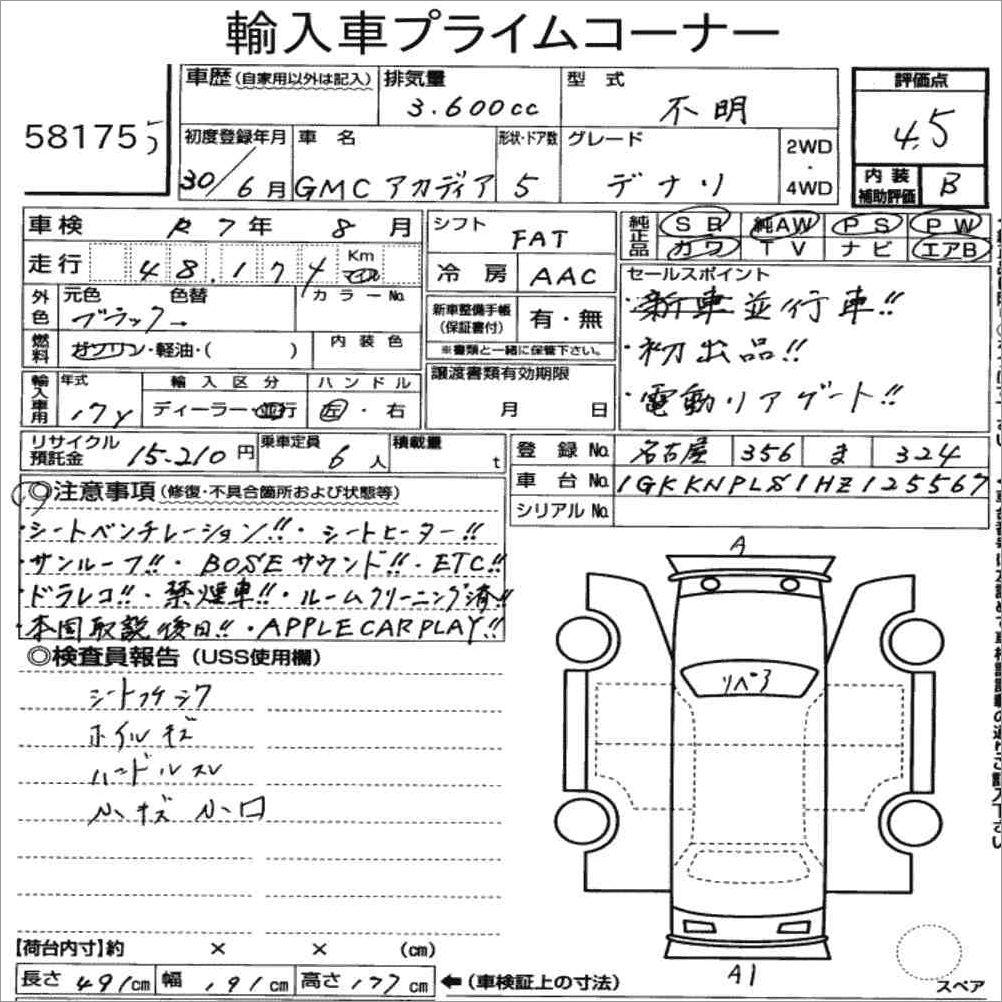 輸入車プライムコーナー
58175 5
車歴 (自家用以外は記入) 排気量 3.600cc 型式 不明 評価点 4.5
初度登録年月 30/6月 車名 GMC アカディア 形状・ドア数 5 グレード デナリ 2WD・4WD 内装補助評価 B
車検 R7年 8月 シフト FAT 純正品 SR 純AW PS PW
カワ TV ナビ エアB
走行 48.174 Km マイル 冷房 AAC セールスポイント
外色 元色 色替 カラーNo. ブラック 新車整備手帳(保証書付) 有・無 ・新車並行車!!
燃料 ガソリン・軽油・( ) 内装色 ※書類と一緒に保管下さい。 ・初出品!!
輸入車用 年式 '17y 輸入区分 ディーラー・並行 ハンドル 左・右 譲渡書類有効期限 月 日 ・電動リアゲート!!
リサイクル預託金 15.210円 乗車定員 6人 積載量 t 登録No. 名古屋 356 ま 324
車台No. 1GKKNPLS1HZ125567
シリアルNo.
◎注意事項 (修復・不具合箇所および状態等)
・シートベンチレーション!!・シートヒーター!!
・サンルーフ!!・BOSEサウンド!!・ETC!!
・ドラレコ!!・禁煙車!!・ルームクリーニング済!!
・本国取説後日!!・APPLECARPLAY!!
◎検査員報告 (USS使用欄)
ホイルキズ
ハンドルスレ
A
リペア
A1
【荷台内寸】約 × × (cm)
長さ 491cm 幅 191cm 高さ 177cm ←(車検証上の寸法)
スペア